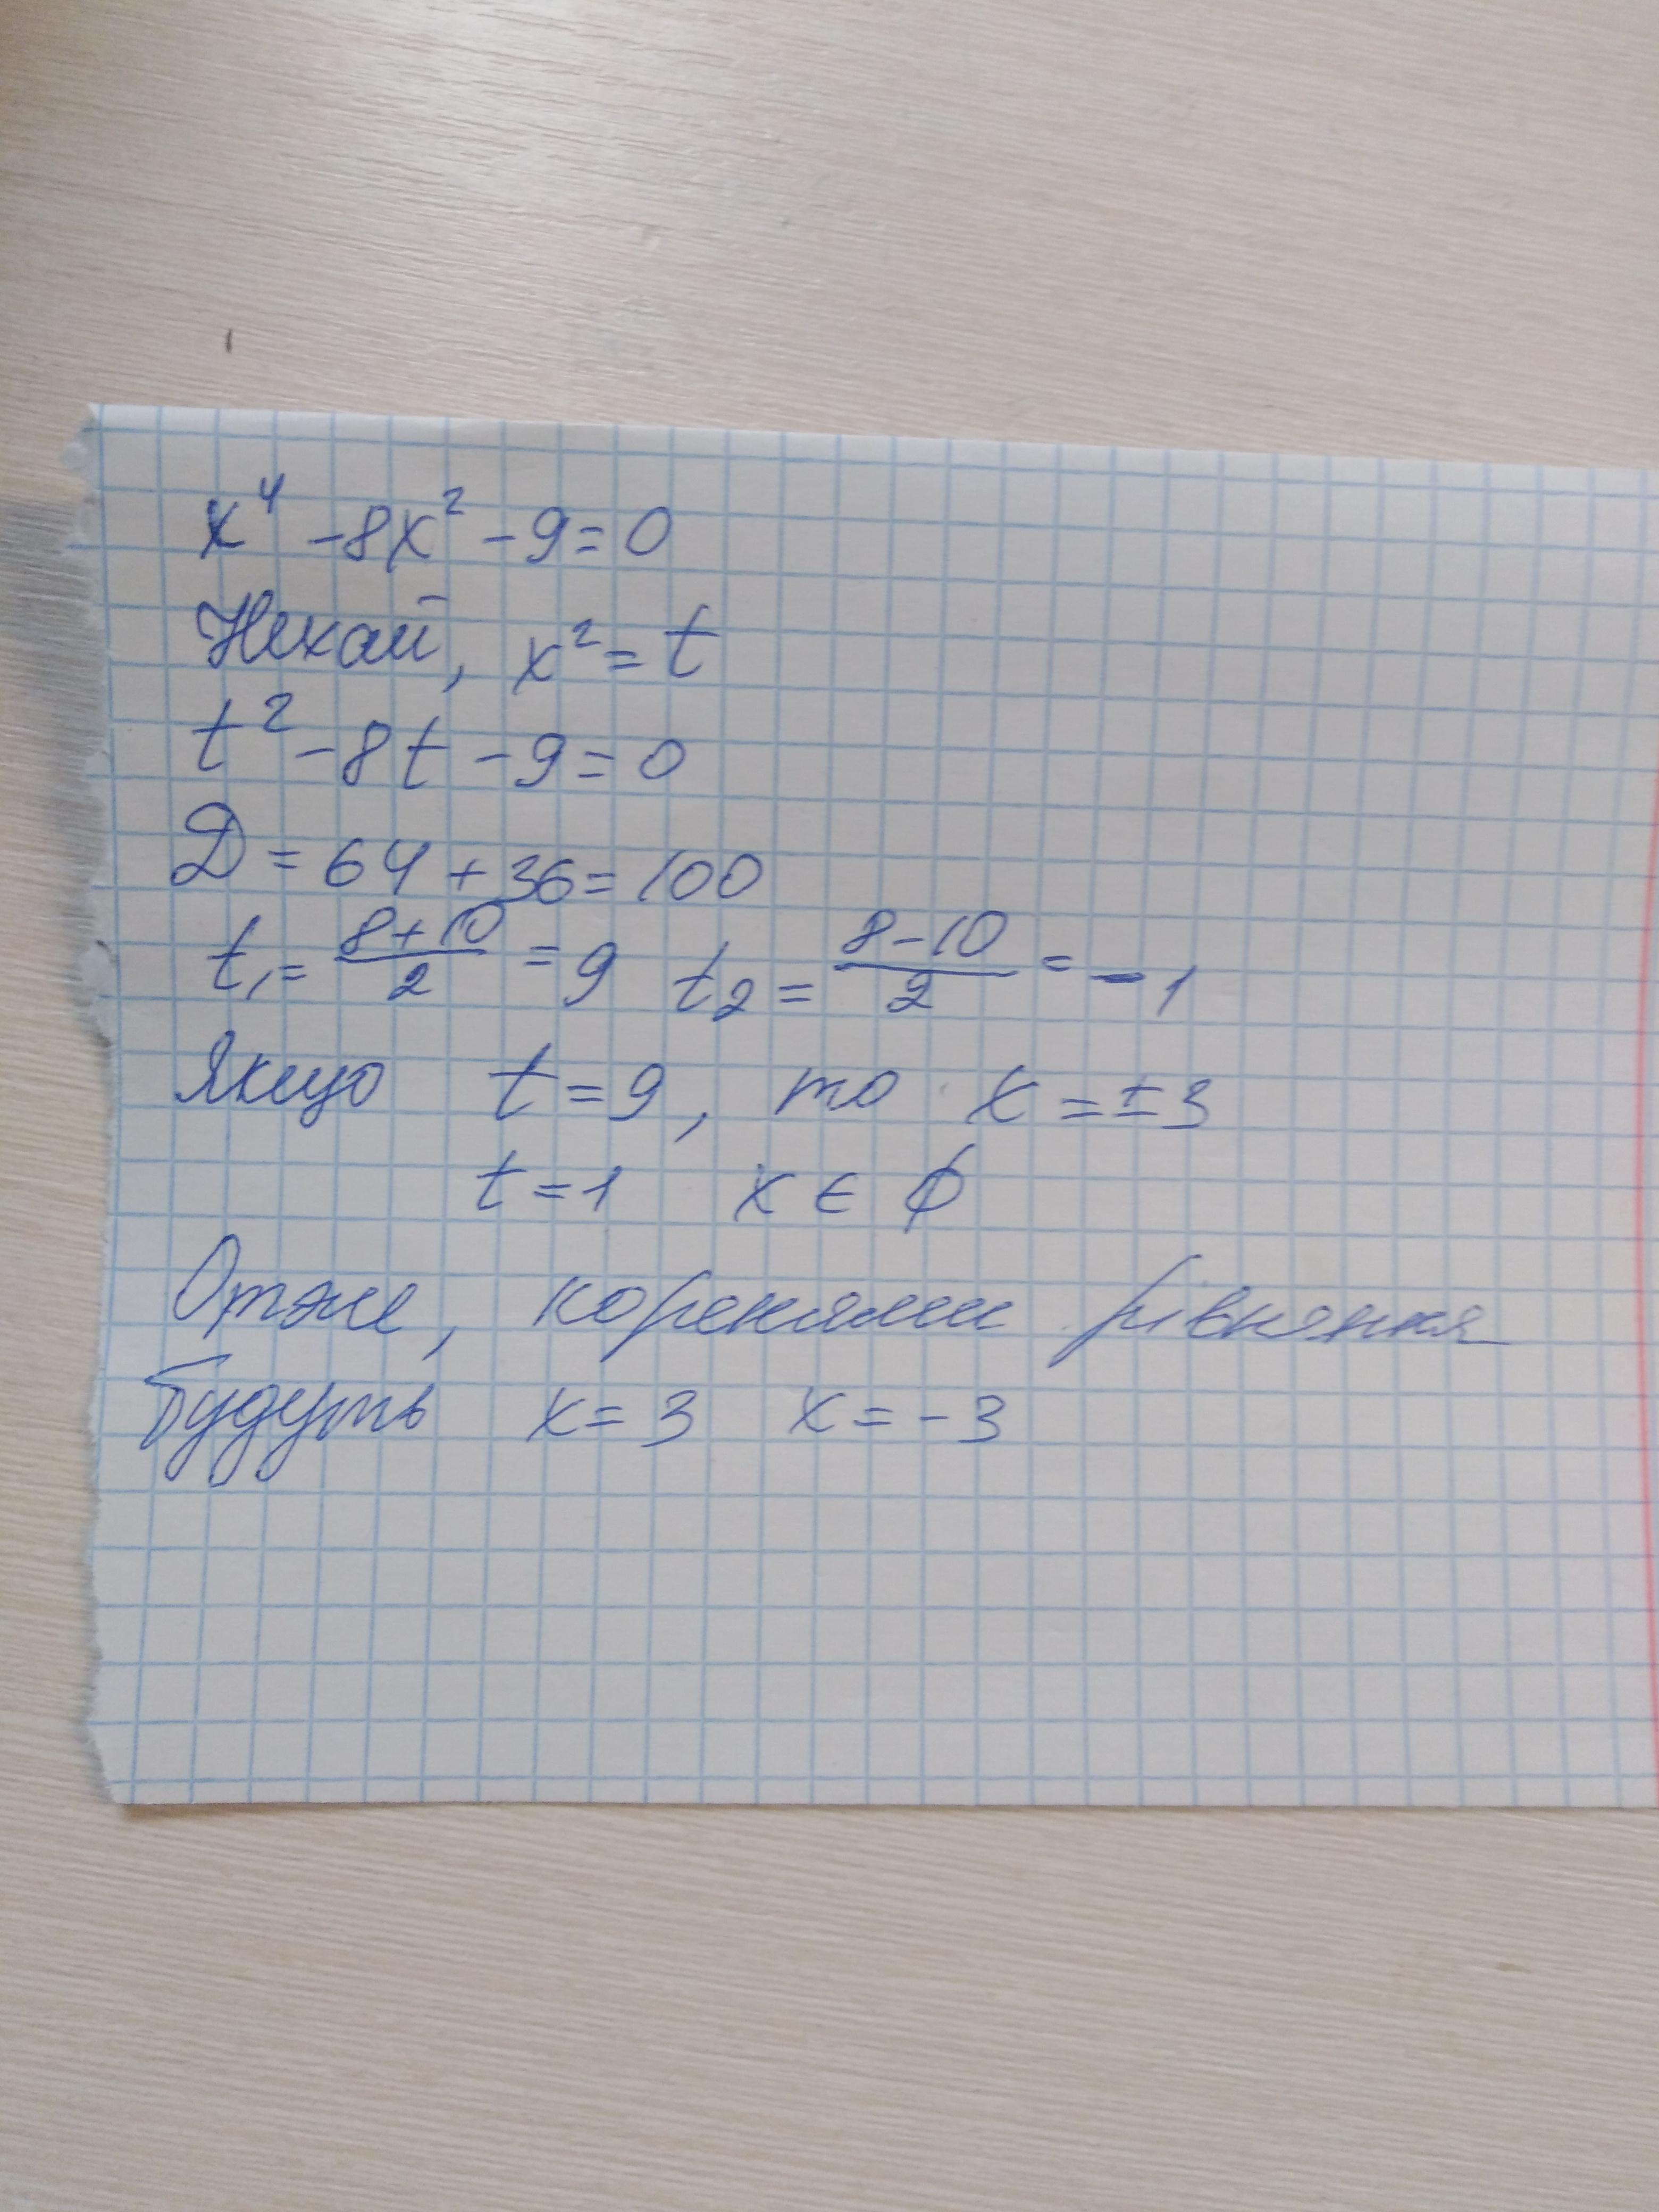 x⁴ - 8x² - 9 = 0
Нехай, x² = t
t² - 8t - 9 = 0
D = 64 + 36 = 100
t₁ = (8+10)/2 = 9 t₂ = (8-10)/2 = -1
Якщо t = 9, то x = ±3
t = 1 x ∈ ∅
Отже, коренями рівняння
будуть x = 3 x = -3